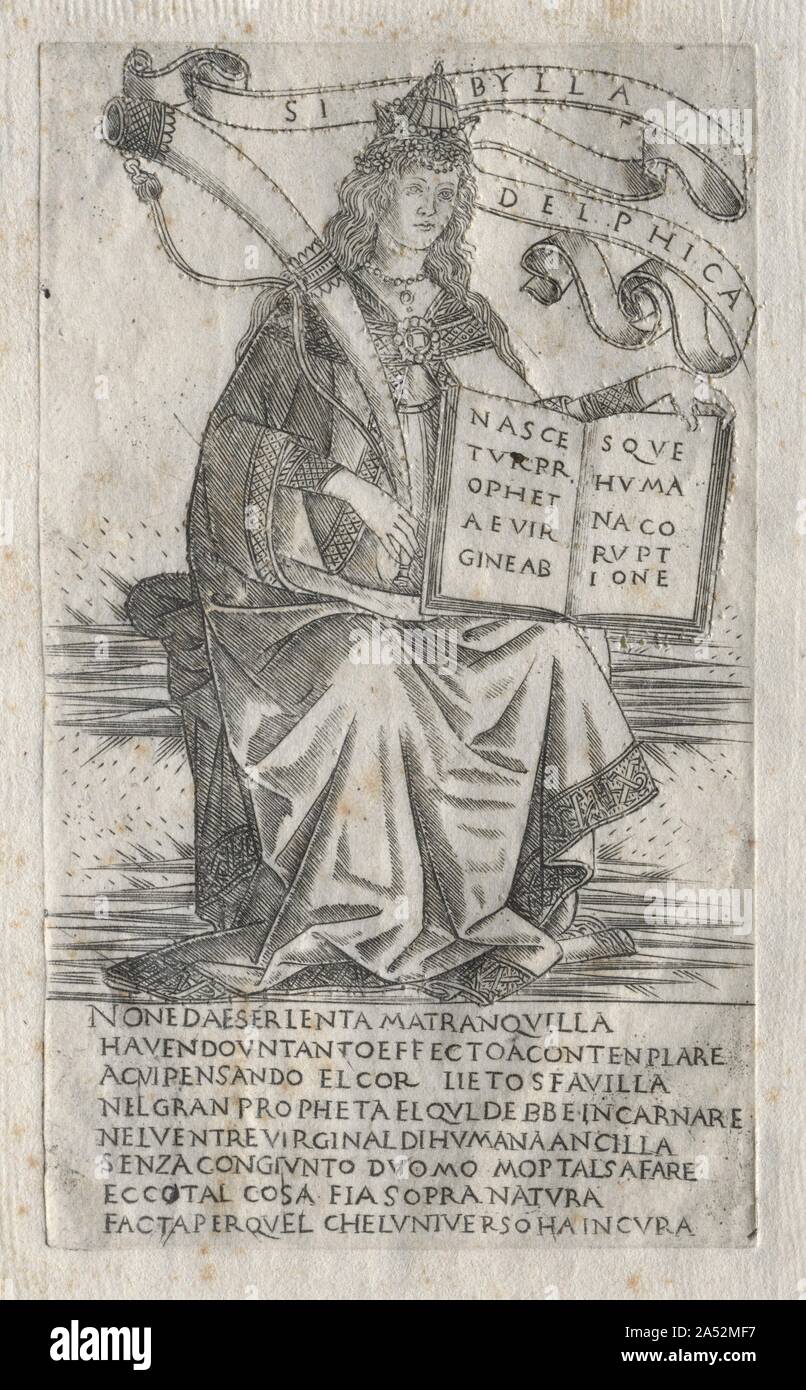 SIBYLLA
DELPHICA
NASCE
TVR PR
OPHET
A E VIR
GINE AB
SQVE
HVMA
NA CO
RVPT
IONE
NONEDAESERLENTA MATRANQVILLA
HAVENDOVNTANTOEFFECTOACONTENPLARE
ACVIPENSANDO ELCOR LIETOSFAVILLA
NELGRAN PROPHETA ELQVLDEBBE INCARNARE
NELVENTREVIRGINALDIHVMANAANCILLA
SENZACONGIVNTO DVOMO MOPTALSAFARE
ECCOTAL COSA FIASOPRANATVRA
FACTAPERQVEL CHELVNIVERSOHAINCVRA
alamy
Image ID: 2A52MF7
www.alamy.com